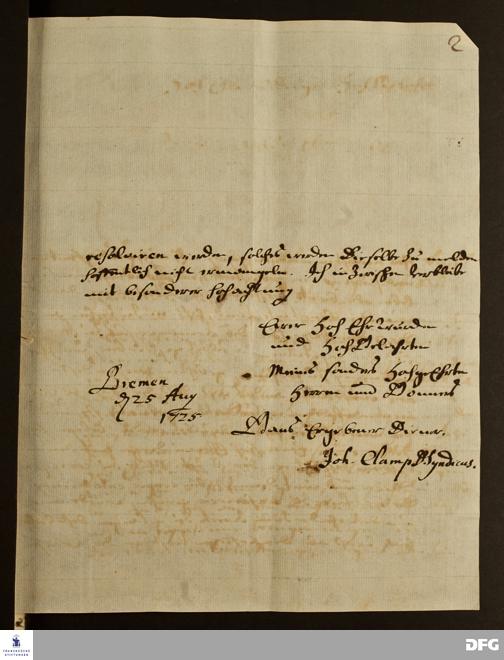 2
resolviren werden, solches werden dieselbe zu melden
hoffentlich nicht ermangeln. Ich inzwischen verbleibe
mit besonderer hochachtung
Eurer Hoch Ehrwürden
und Hochgelahrten
Meines sonders Hochgeehrten
Herren und
Bremen
d 25 Aug
1725
Gantz Ergebener Diener.
Joh. Clamp Syndicus.
FRANCKESCHE
STIFTUNGEN
DFG